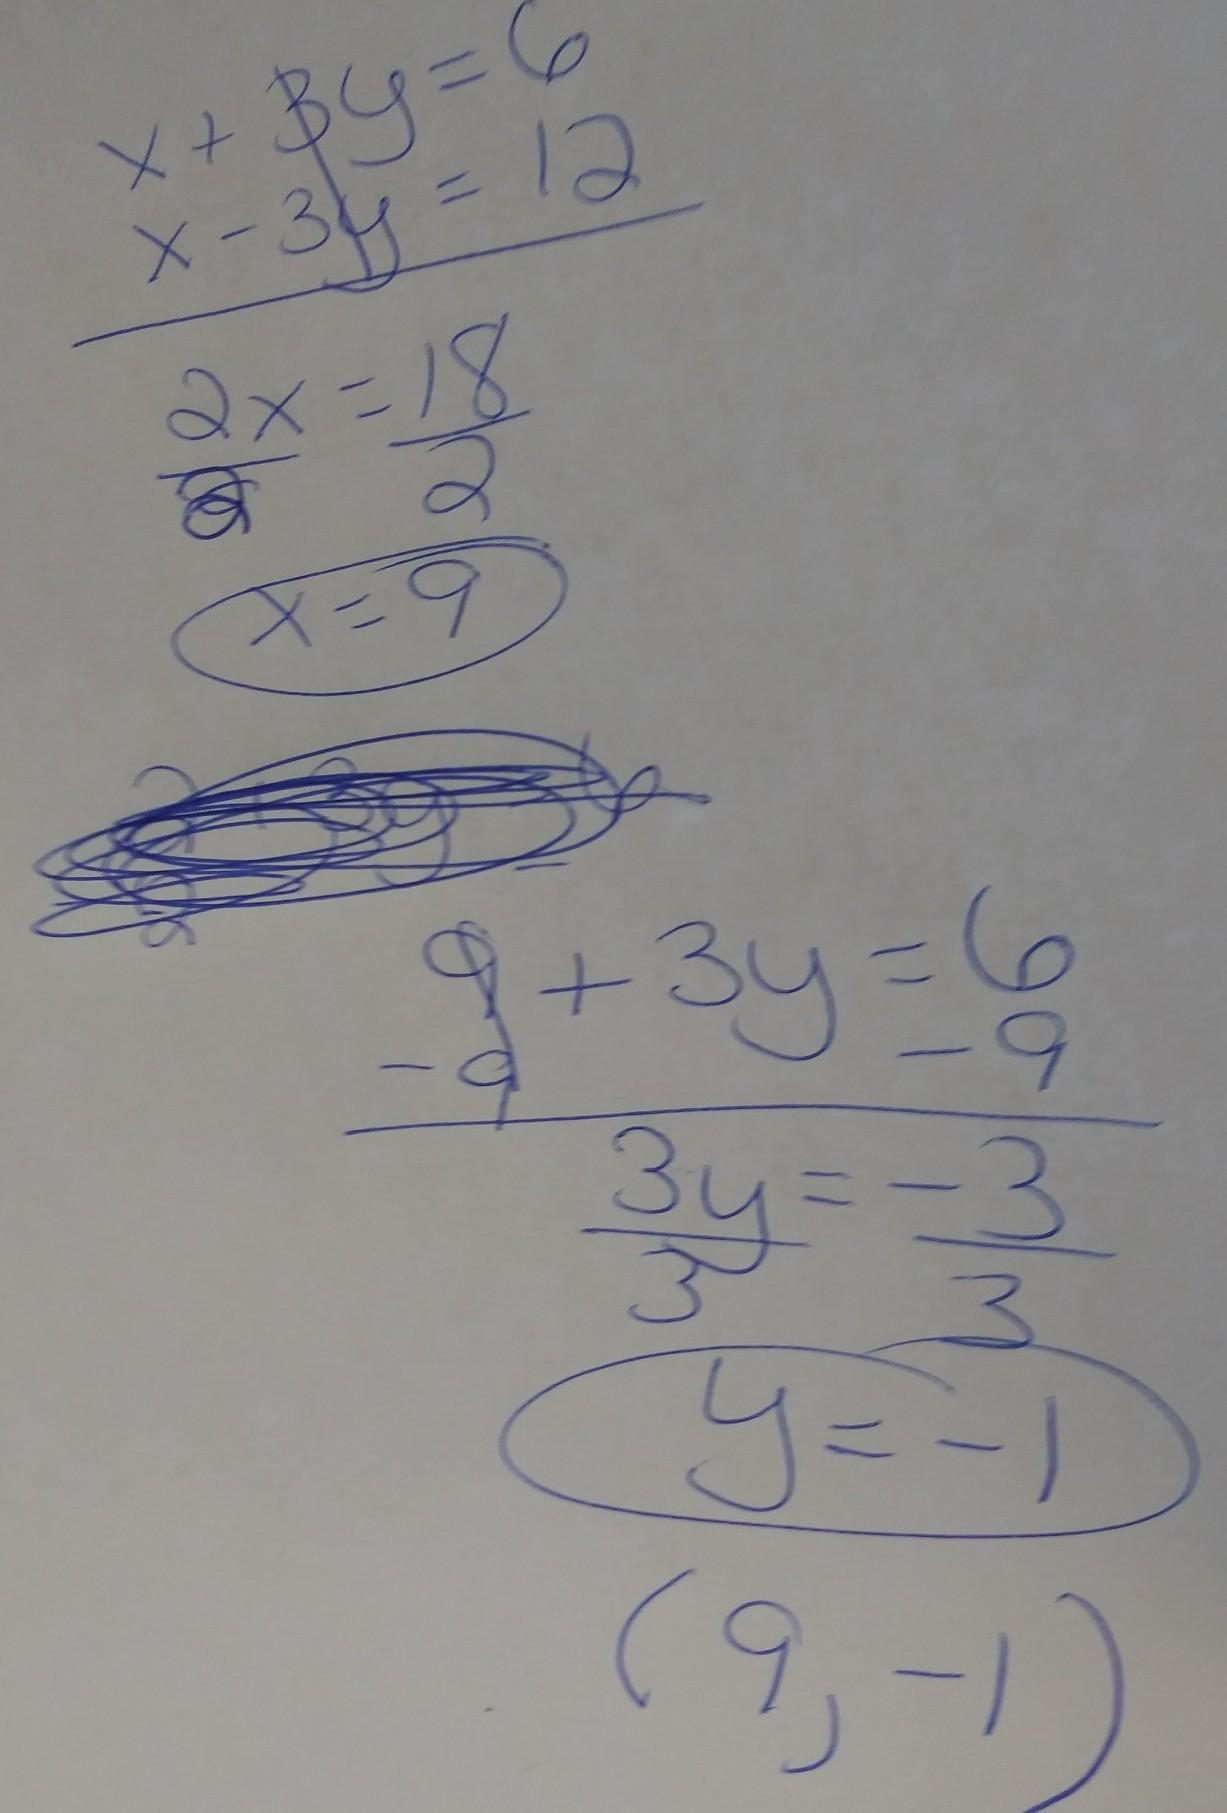 x + 3y = 6
x - 3y = 12
2x = 18
2 2
x = 9
9 + 3y = 6
- 9 - 9
3y = - 3
3 3
y = - 1
(9, -1)